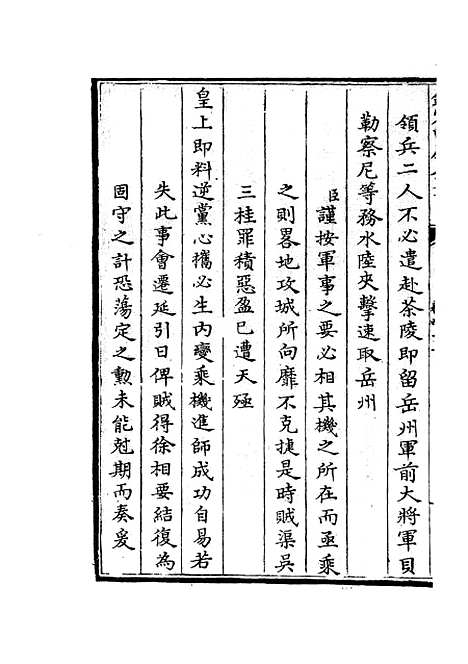 領兵二人不必遣赴茶陵即留岳州軍前大將軍貝
勒察尼等務水陸夾擊速取岳州
臣謹按軍事之要必相其機之所在而亟乘
之則畧地攻城所向靡不克捷是時賊渠吳
三桂罪積惡盈已遭天殛
皇上即料逆黨心攜必生内變乘機進師成功自易若
失此事會遷延引日俾賊得徐相要結復為
固守之計恐蕩定之勲未能尅期而奏爰